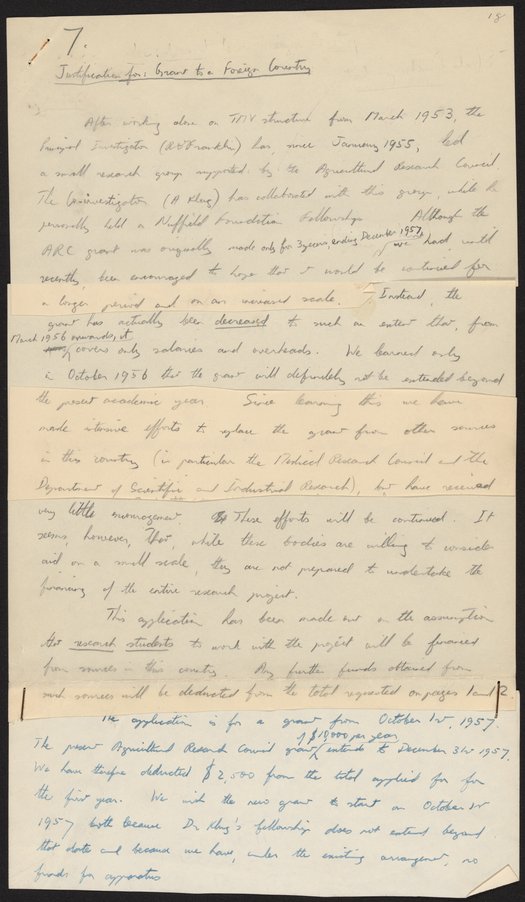 18
7.
Justification for: Grant to a Foreign Country
After working alone on TMV structure from March 1953, the
Principal Investigator (R E Franklin) has, since January 1955, led
a small research group supported by the Agricultural Research Council.
The Co-investigator (A Klug) has collaborated with this group, while he
personally held a Nuffield Foundation Fellowship. Although the
ARC grant was originally made only for 3 years ending December 1957, we had, until
recently, been encouraged to hope that it would be continued for
a longer period and on an increased scale. Instead, the
grant has actually been decreased to such an extent that, from
March 1956 onwards, it
covers only salaries and overheads. We learned only
in October 1956 that the grant will definitely not be extended beyond
the present academic year. Since learning this we have
made intensive efforts to replace the grant from other sources
in this country (in particular the Medical Research Council and the
Department of Scientific and Industrial Research), but have received
very little encouragement. These efforts will be continued. It
seems, however, that, while these bodies are willing to consider
aid on a small scale, they are not prepared to undertake the
financing of the entire research project.
This application has been made out on the assumption
that research students to work with the project will be financed
from sources in this country. Any further funds obtained from
such sources will be deducted from the total requested on pages 1 and 2.
The application is for a grant from October 1st, 1957.
The present Agricultural Research Council grant of $10,000 per year extends to December 31st 1957.
We have therefore deducted $2,500 from the total applied for for
the first year. We wish the new grant to start on October 1st
1957 both because Dr. Klug's fellowship does not extend beyond
that date and because we have, under the existing arrangement, no
funds for apparatus